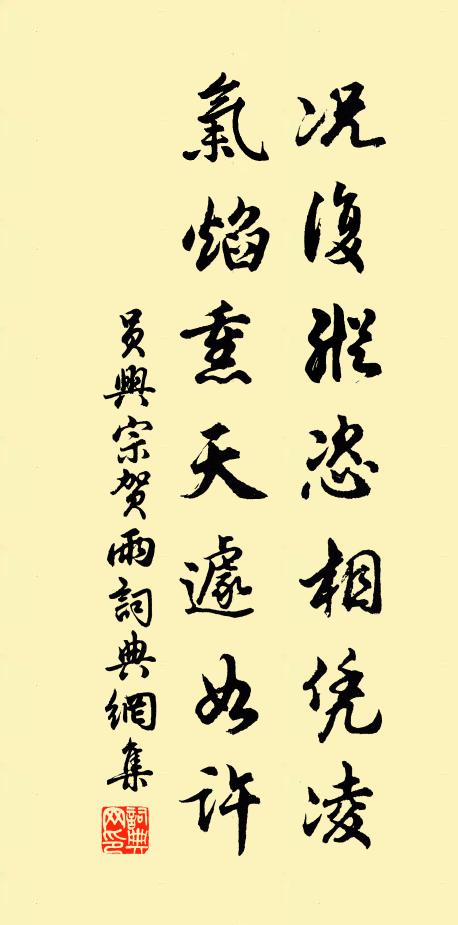 况復縱恣相凭凌
氣焰熏天遽如許
員興宗賀雨詞典網集
詞典網印